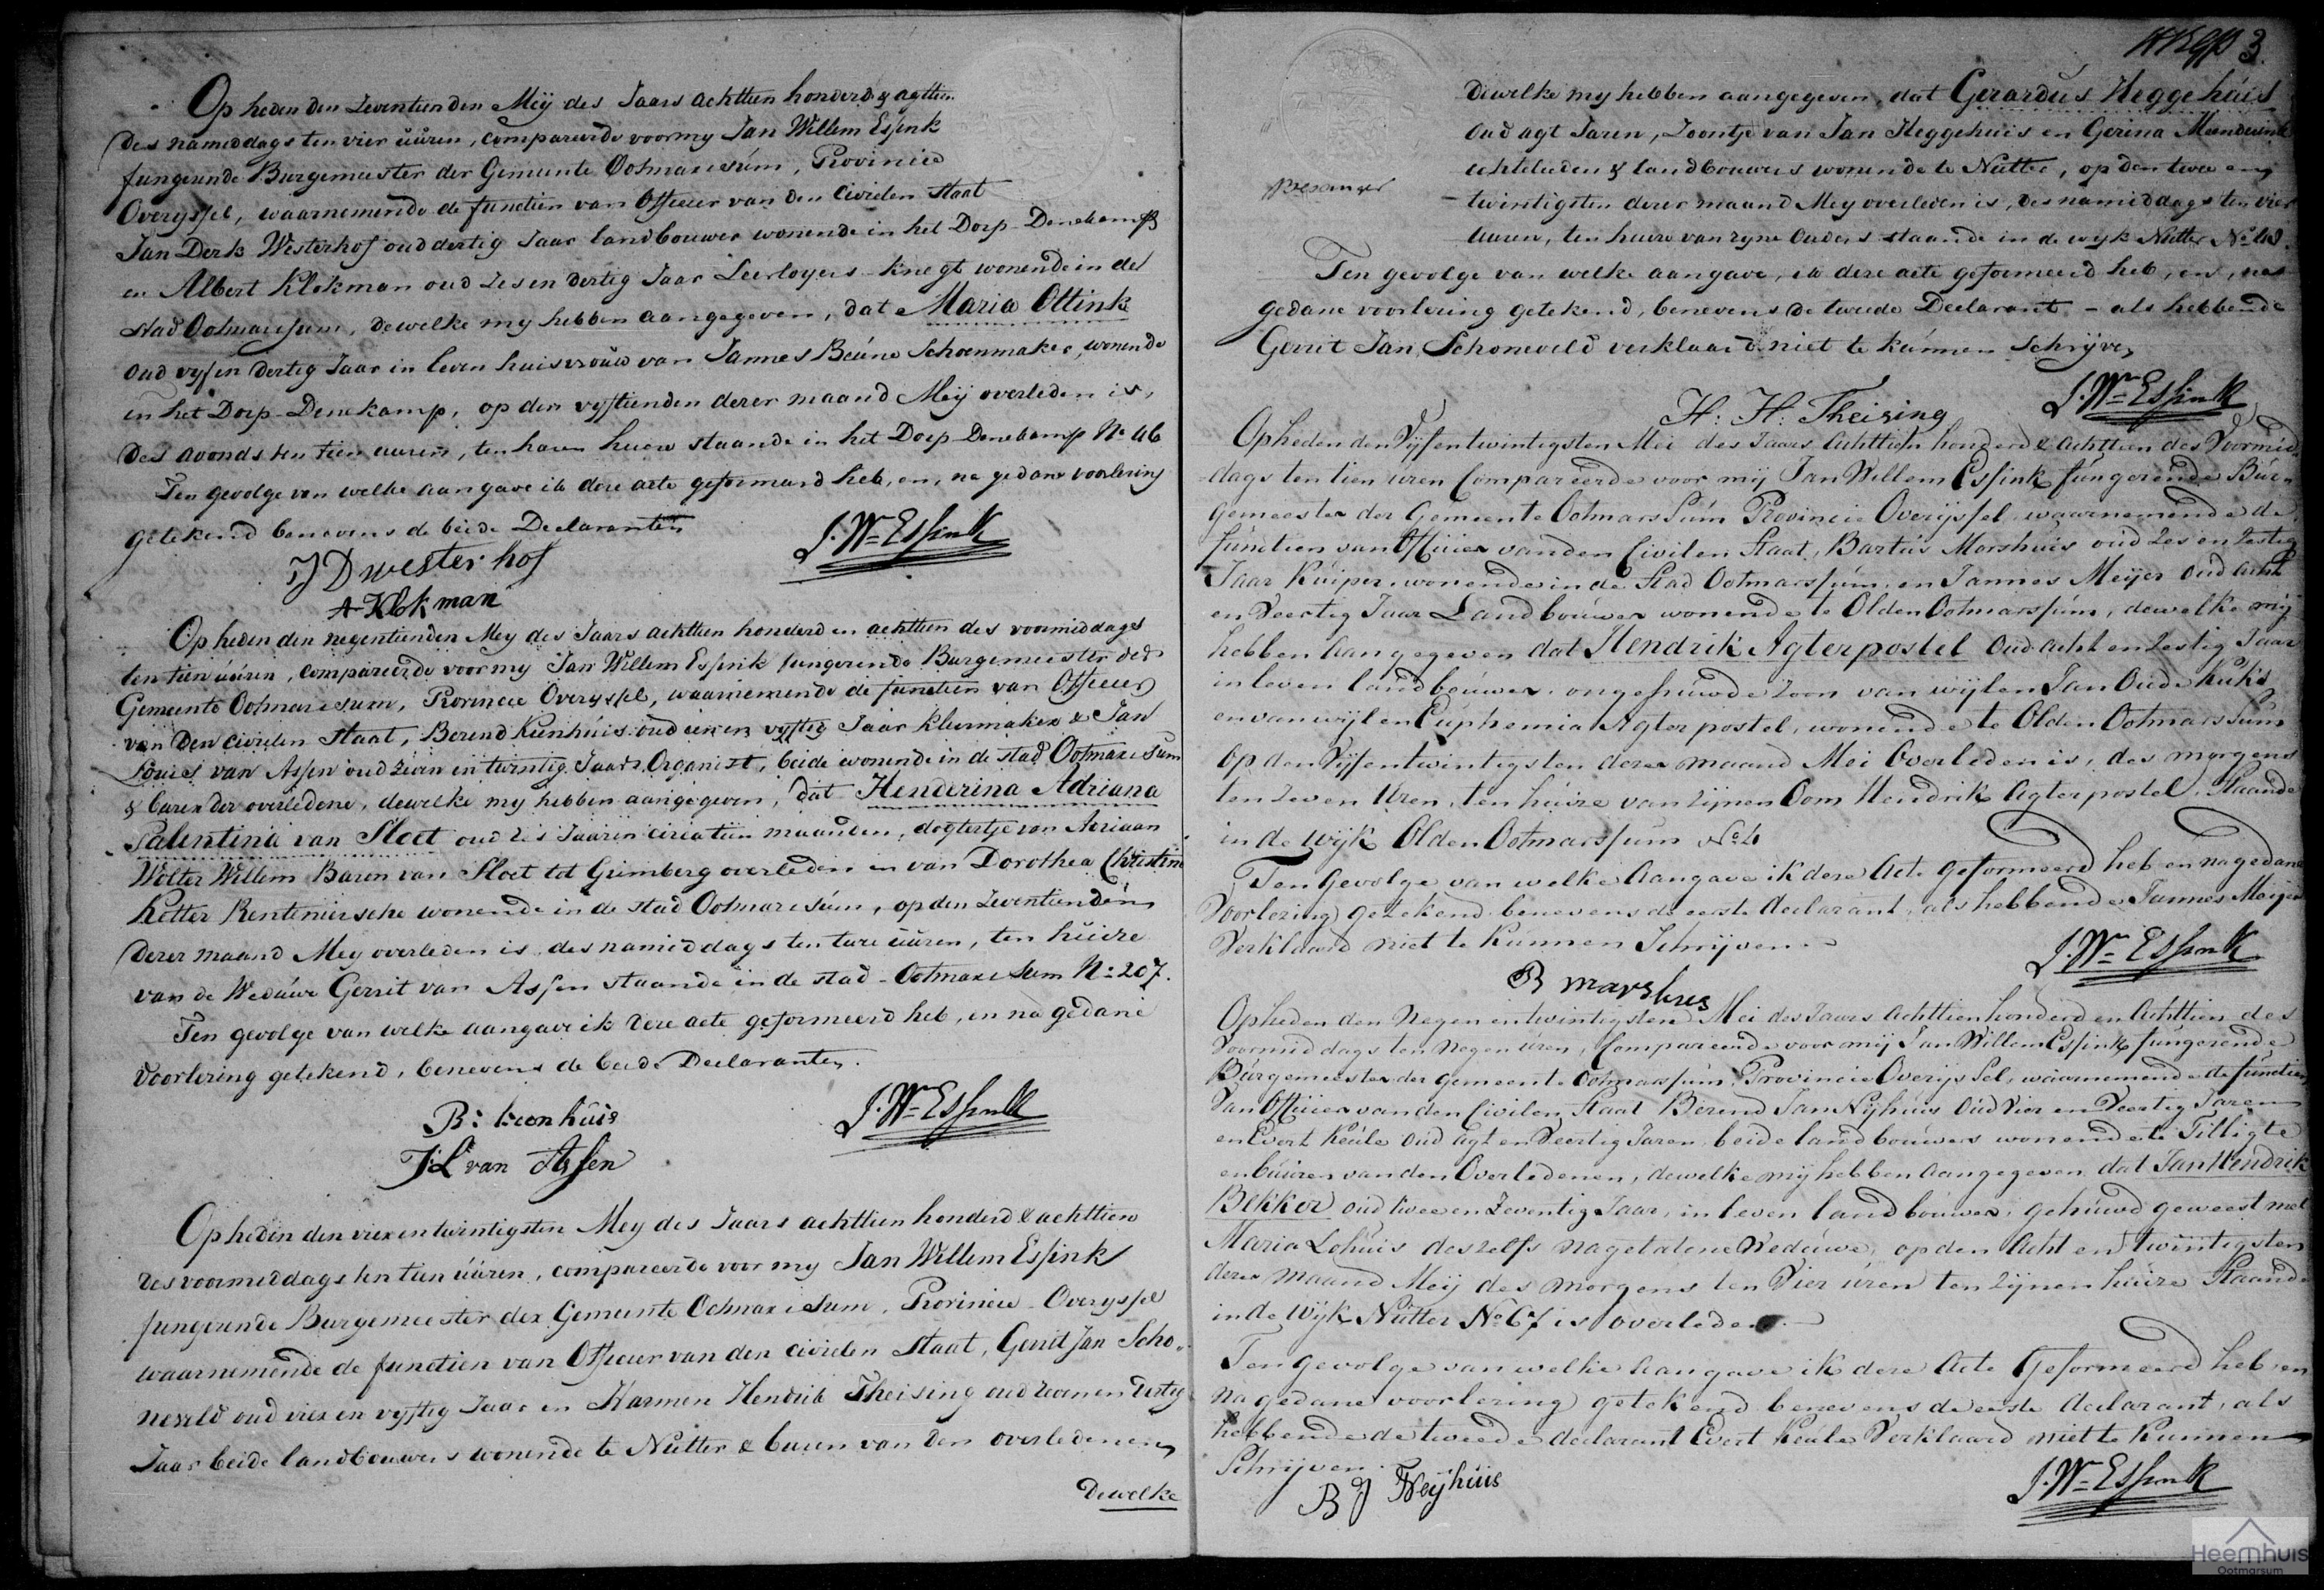 Op heden den Zeventienden Meÿ des Jaars achttien honderd & agttien
des nameddags ten vier üüren, compareerde voor my Jan Willem Essink
fungerende Burgemeester der Gemeente Ootmarssúm, Provincie
Overyssel, waarnemende de functien van Officier van den Civielen Staat
Jan Derk Westerhof oud dertig Jaar landbouwer wonende in het Dorp Denekamp
en Albert Klokman oud Zes en dertig Jaar Leerloyers-knegt wonende in de
stad Ootmarssum, dewelke my hebben aangegeven, dat Maria Ottink
oud vyf en dertig Jaar in leven huisvrouw van Jannes Beúne Schoenmaker, wonende
in het Dorp Denekamp, op den vyftienden dezer maand Meÿ overleden is,
des avonds ten tien uuren, ten haren huize staande in het Dorp Denekamp No 46
Ten gevolge van welke aangave ik deze acte geformeerd heb, en, na gedane voorlezing
getekend benevens de beide Declaranten
J. Wm Essink
J D westerhof
A Klokman
Op heden den negentienden Mey des Jaars achttien honderd en achttien des voormiddags
ten tien úúren, compareerde voor my Jan Willem Essink fungerende Burgemeester der
Gemeente Ootmarssum, Provincie Overyssel, waarnemende de functien van Officier
van den civielen Staat, Berend Kienhúis oud een en vyftig Jaar kleermaker & Jan
Louis van Assen oud zeven en twintig Jaar Organist, beide wonende in de stad Ootmarssum
& buren der overledene, dewelke my hebben aangegeven, dat Henderina Adriana
Palentina van Sloet oud zes Jaaren circa tien maanden, dogtertje van Adriaan
Wolter Willem Baron van Sloet tot Grimberg overleden en van Dorothea Christina
Kotter Renteniersche wonende in de stad Ootmarssúm, op den Zeventienden
dezer maand Mey overleden is des namiddags ten twee úúren, ten húize
van de Wedúwe Gerrit van Assen staande in de stad Ootmarssum No 207.
Ten gevolge van welke aangave ik deze acte geformeerd heb, en na gedane
voorlezing getekend, benevens de beide Declaranten.
B: keenhúis
J. Wm Essink
J:L van Assen
Op heden den vier en twintigsten Mey des Jaars achttien honderd & achttien
des voormiddags ten tien úúren, compareerde voor my Jan Willem Essink
fungerende Burgemeester der Gemeente Ootmarssum, Provincie Overyssel
waarnemende de functien van Officier van den civielen Staat, Gerrit Jan Scho„
neveld oud vier en vyftig Jaar en Harmen Hendrik Theising oud zeven en dertig
Jaar beide landbouwers wonende te Nútter & buren van den overledenen
Dewelke
3.
Dewelke my hebben aangegeven, dat Gerardús Heggehúis
oud agt Jaren, Zoontje van Jan Heggehuis en Gerina Meinderink
echtelieden & landbouwers wonende te Nutter, op den twee en
twintigsten dezer maand Mey overleden is, des namiddags ten vier
uuren, ten huize van zyne Ouders staande in de wyk Nutter No 40.
Ten gevolge van welke aangave, ik deze acte geformeerd heb, en, na
gedane voorlezing getekend, benevens de tweede Declarant - als hebbende
Gerrit Jan Schoneveld verklaard niet te kúnnen Schryven
H: H: Theising
J. Wm Essink
Op heden den Vyfentwintigsten Mei des Jaars Achttien honderd & achttien des Voormid„
dags ten tien uren Compareerde voor mij Jan Willem Essink fúngerende Búr„
gemeester der Gemeente Ootmarssúm Provincie Overijssel waarnemende de
fúnctien van Officier van den Civilen Staat, Bartus Morshuis oud Zes en Zestig
Jaar Kúiper, wonende in de Stad Ootmarssúm en Jannes Meijer oud acht
en Veertig Jaar Landboúwer wonende te Olden Ootmarssúm, dewelke mij
hebben Aangegeven dat Hendrik Agterpostel oud acht en Zestig Jaar
in leven landboúwer, ongehúwde zoon van wijlen Jan Oude Kúks
en van wijlen Eúphemia Agterpostel, wonende te Olden Ootmarssúm
op den Vijfentwintigsten dezer maand Mei Overleden is, des morgens
ten Zeven Uren, ten húize van zijnen Oom Hendrik Agterpostel, Staande
in de Wijk Olden Ootmarssum No 4
Ten Gevolge van welke Aangave ik deze Acte geformeerd heb en na gedane
Voorlezing getekend benevens de eerste declarant, als hebbende Jannes Meijer
Verklaard niet te kúnnen Schrijven
J. Wm Essink
B morshuis
Op heden den Negen en twintigsten Mei des Jaars Achttien honderd en Achttien des
Voormiddags ten Negen úren, Compareerde voor mij Jan Willem Essink fúngerende
Búrgemeester der gemeente Ootmarssúm Provincie Overijssel, waarnemende de fúnctien
Van Officier van den Civilen Staat Berend Jan Nijhúis Oúd Vier en Veertig Jaren
en Evert Keúle oud Agt en Veertig Jaren beide landboúwers wonende te Tilligte
en búúren van den Overledenen, dewelke mij hebben Aangegeven dat Jan Hendrik
Bekker oúd twee en Zeventig Jaar, in leven landboúwer, gehúwd geweest met
Maria Lohúis deszelfs Nagelatene Wedúwe, op den Acht en twintigsten
dezer maand Meij des morgens ten Vier úren ten zijnen húize Staande
in de Wijk Nútter No 67 is overleden.
Ten gevolge van welke Aangave ik deze Acte Geformeerd heb en
na gedane voorlezing getekend benevens de eerste declarant, als
hebbende de tweede declarant Evert Keúle Verklaard niet te kunnen
Schrijven.
B J Neijhúis
J. Wm Essink
Heemhuis
Ootmarsum